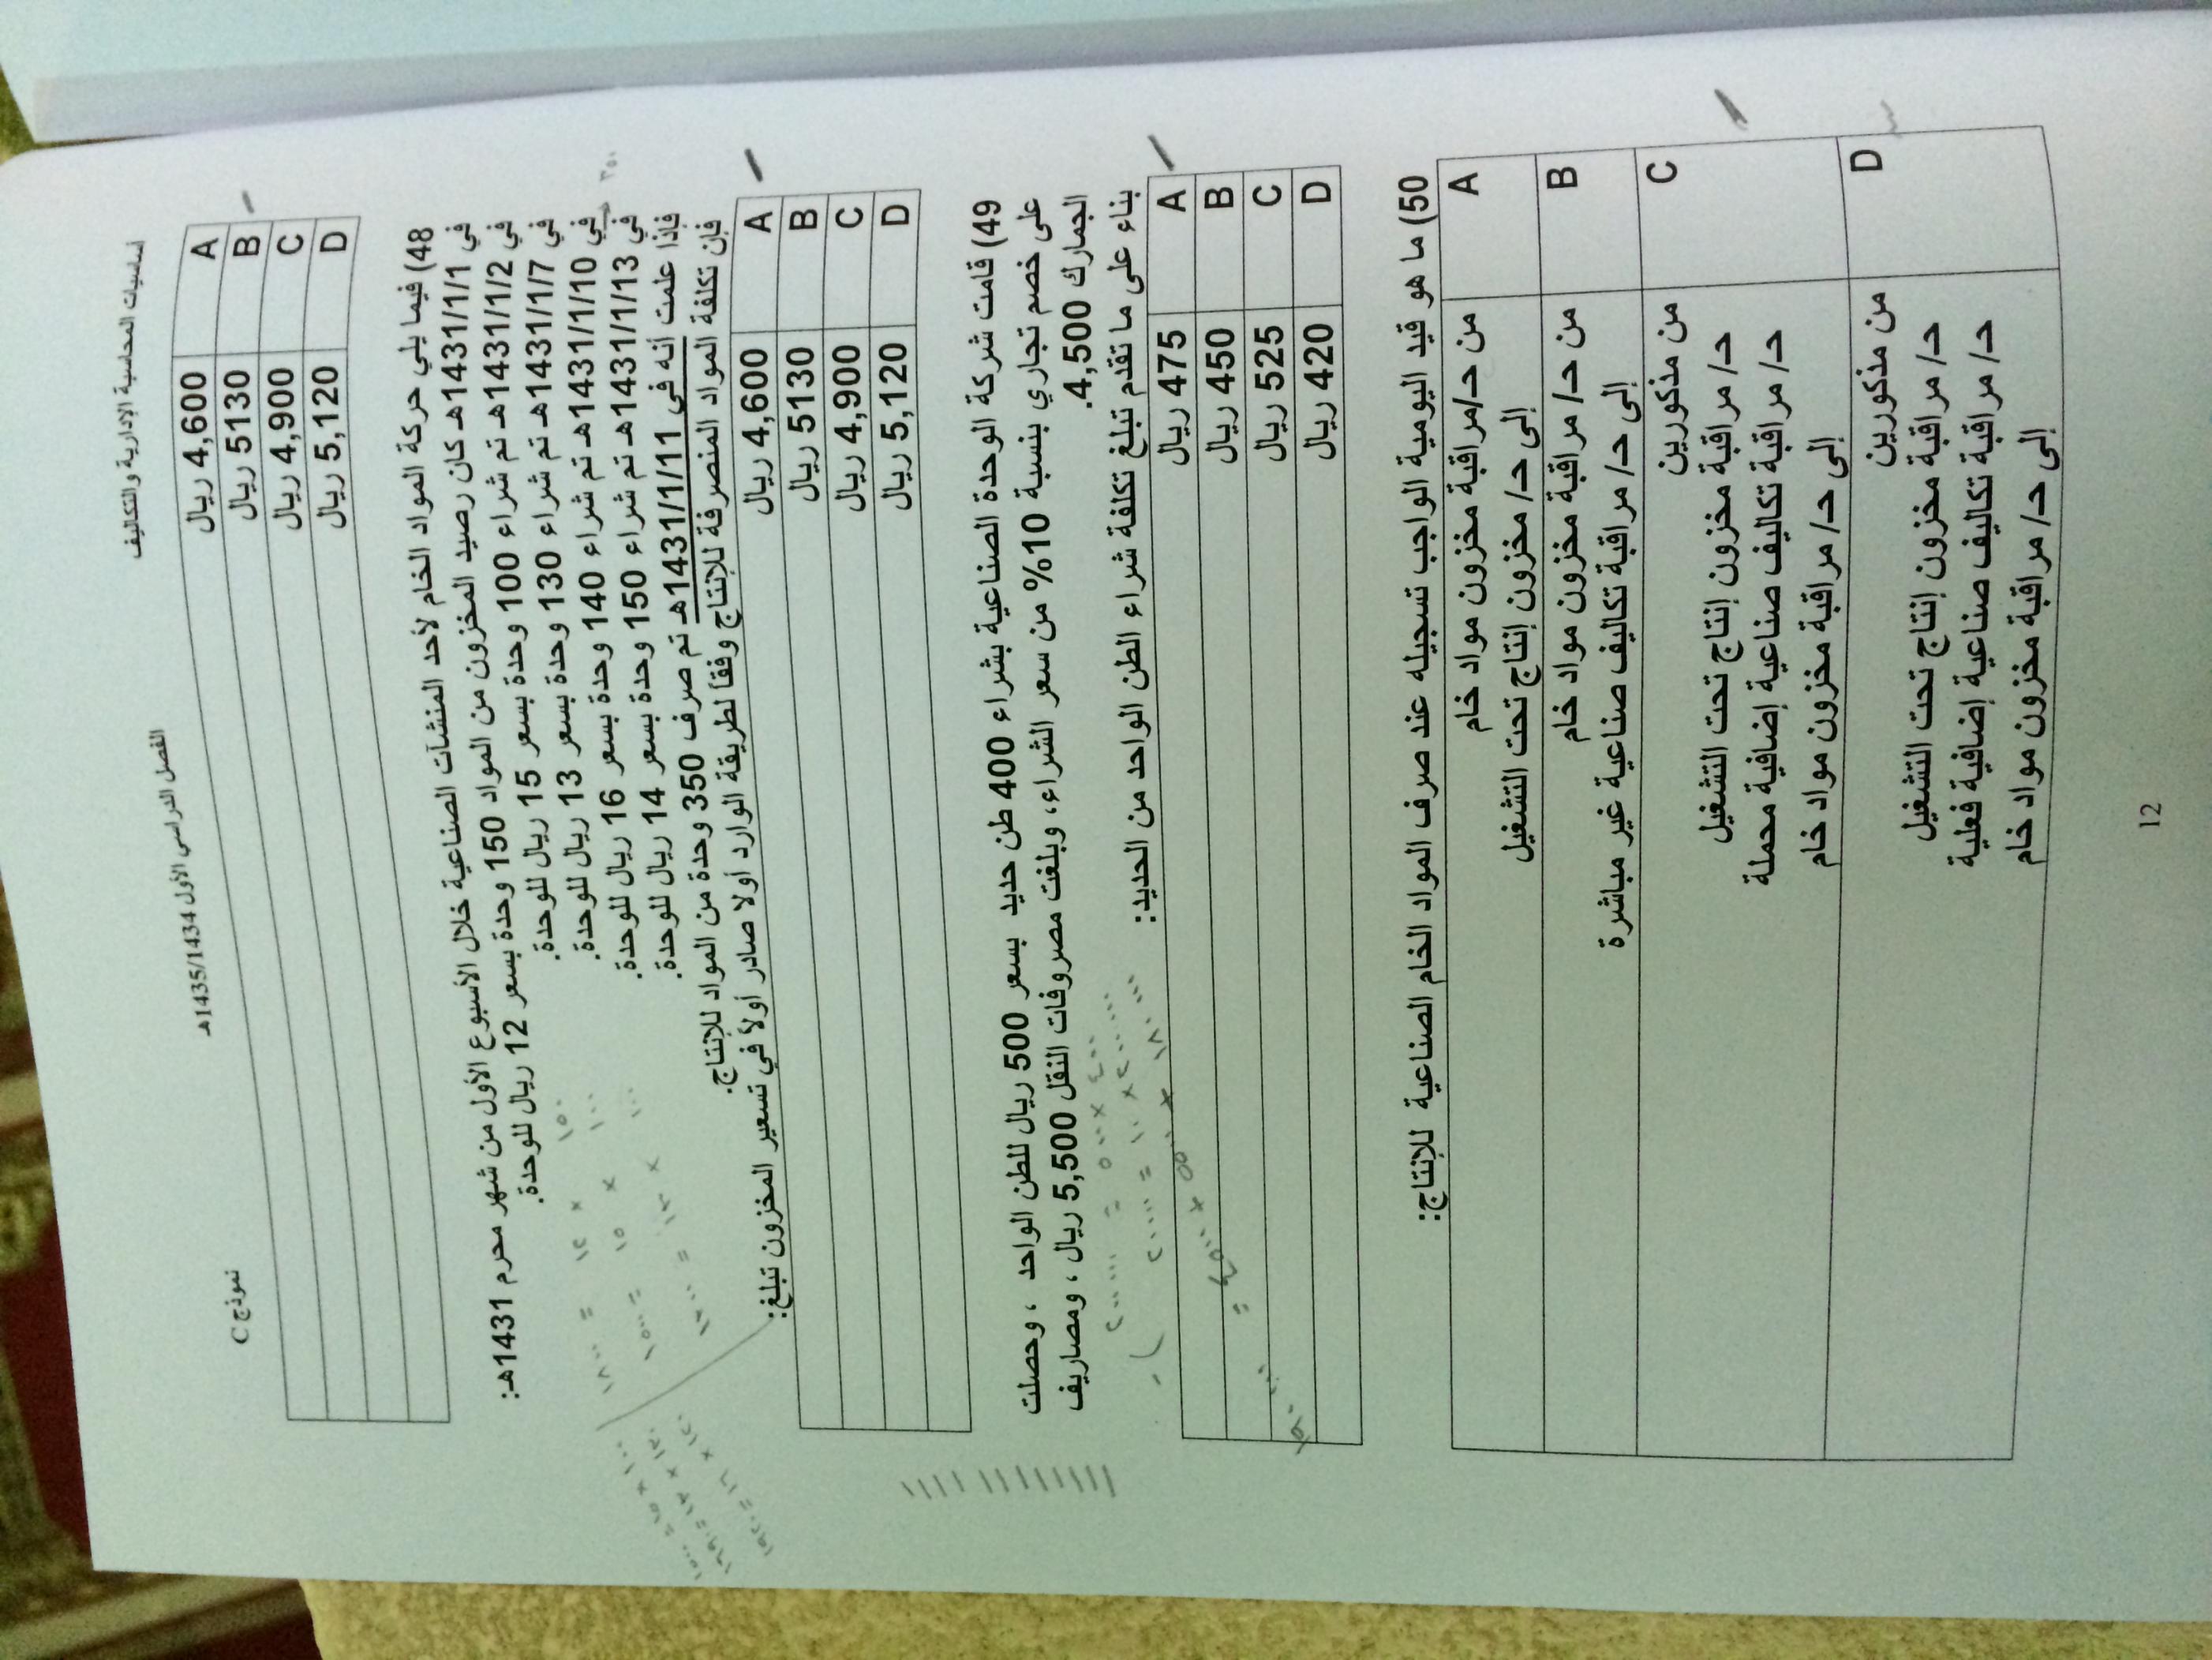 أساسيات المحاسبة الإدارية والتكاليف
الفصل الدراسي الأول 1435/1434هـ
نموذج C
A 4,600 ريال
B 5130 ريال
C 4,900 ريال
D 5,120 ريال
48) فيما يلي حركة المواد الخام لأحد المنشآت الصناعية خلال الأسبوع الأول من شهر محرم 1431هـ:
في 1431/1/1هـ كان رصيد المخزون من المواد 150 وحدة بسعر 12 ريال للوحدة.
في 1431/1/2هـ تم شراء 100 وحدة بسعر 15 ريال للوحدة.
في 1431/1/7هـ تم شراء 130 وحدة بسعر 13 ريال للوحدة.
في 1431/1/10هـ تم شراء 140 وحدة بسعر 16 ريال للوحدة.
في 1431/1/13هـ تم شراء 150 وحدة بسعر 14 ريال للوحدة.
فإذا علمت أنه في 1431/1/11هـ تم صرف 350 وحدة من المواد للإنتاج.
فإن تكلفة المواد المنصرفة للإنتاج وفقاً لطريقة الوارد أولا صادر أولاً في تسعير المخزون تبلغ:
٣٥٠
١٥٠ × ١٢ = ١٨٠٠
١٠٠ × ١٥ = ١٥٠٠
١٠٠ × ١٣ = ١٣٠٠
A 4,600 ريال
B 5130 ريال
C 4,900 ريال
D 5,120 ريال
49) قامت شركة الوحدة الصناعية بشراء 400 طن حديد بسعر 500 ريال للطن الواحد ، وحصلت
على خصم تجاري بنسبة 10% من سعر الشراء، وبلغت مصروفات النقل 5,500 ريال ، ومصاريف
الجمارك 4,500.
بناء على ما تقدم تبلغ تكلفة شراء الطن الواحد من الحديد:
A 475 ريال
B 450 ريال
C 525 ريال
D 420 ريال
50) ما هو قيد اليومية الواجب تسجيله عند صرف المواد الخام الصناعية للإنتاج:
A
من حـ/مراقبة مخزون مواد خام
إلى حـ/ مخزون إنتاج تحت التشغيل
B
من حـ/ مراقبة مخزون مواد خام
إلى حـ/ مراقبة تكاليف صناعية غير مباشرة
C
من مذكورين
حـ/ مراقبة مخزون إنتاج تحت التشغيل
حـ/ مراقبة تكاليف صناعية إضافية محملة
إلى حـ/ مراقبة مخزون مواد خام
D
من مذكورين
حـ/ مراقبة مخزون إنتاج تحت التشغيل
حـ/ مراقبة تكاليف صناعية إضافية فعلية
إلى حـ/ مراقبة مخزون مواد خام
12